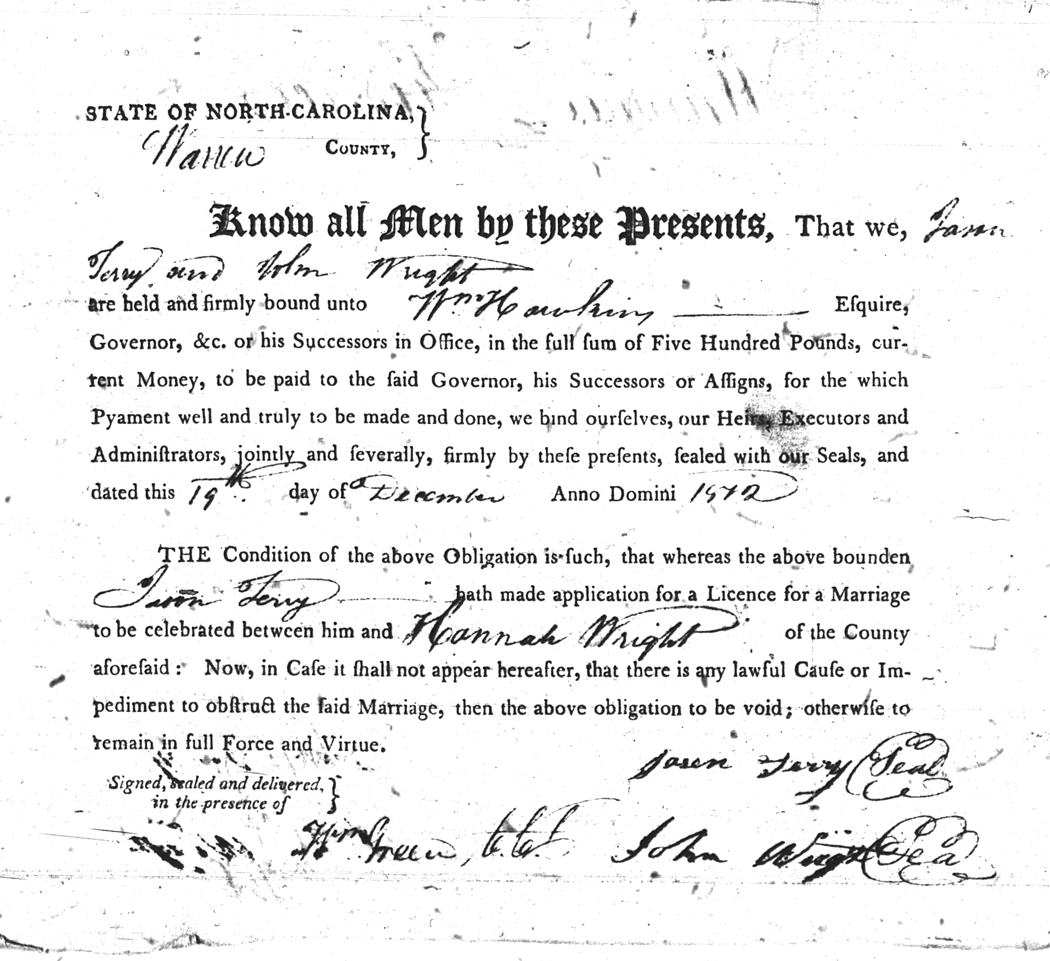 STATE OF NORTH-CAROLINA,
Warren COUNTY,
Know all Men by these Presents, That we, Jason
Terry and John Wright
are held and firmly bound unto Wm Hawkins Eſquire,
Governor, &c. or his Successors in Office, in the full ſum of Five Hundred Pounds, cur-
rent Money, to be paid to the ſaid Governor, his Successors or Aſſigns, for the which
Pyament well and truly to be made and done, we bind ourſelves, our Heirs, Executors and
Adminiſtrators, jointly and ſeverally, firmly by theſe preſents, ſealed with our Seals, and
dated this 19th day of December Anno Domini 1812
THE Condition of the above Obligation is ſuch, that whereas the above bounden
Jason Terry hath made application for a Licence for a Marriage
to be celebrated between him and Hannah Wright of the County
aforeſaid: Now, in Caſe it ſhall not appear hereafter, that there is any lawful Cauſe or Im-
pediment to obſtruct the ſaid Marriage, then the above obligation to be void; otherwiſe to
remain in full Force and Virtue.
Jasen Terry (Seal
Signed, sealed and delivered,
in the presence of
Wm Green, C.C. John Wright (Sea